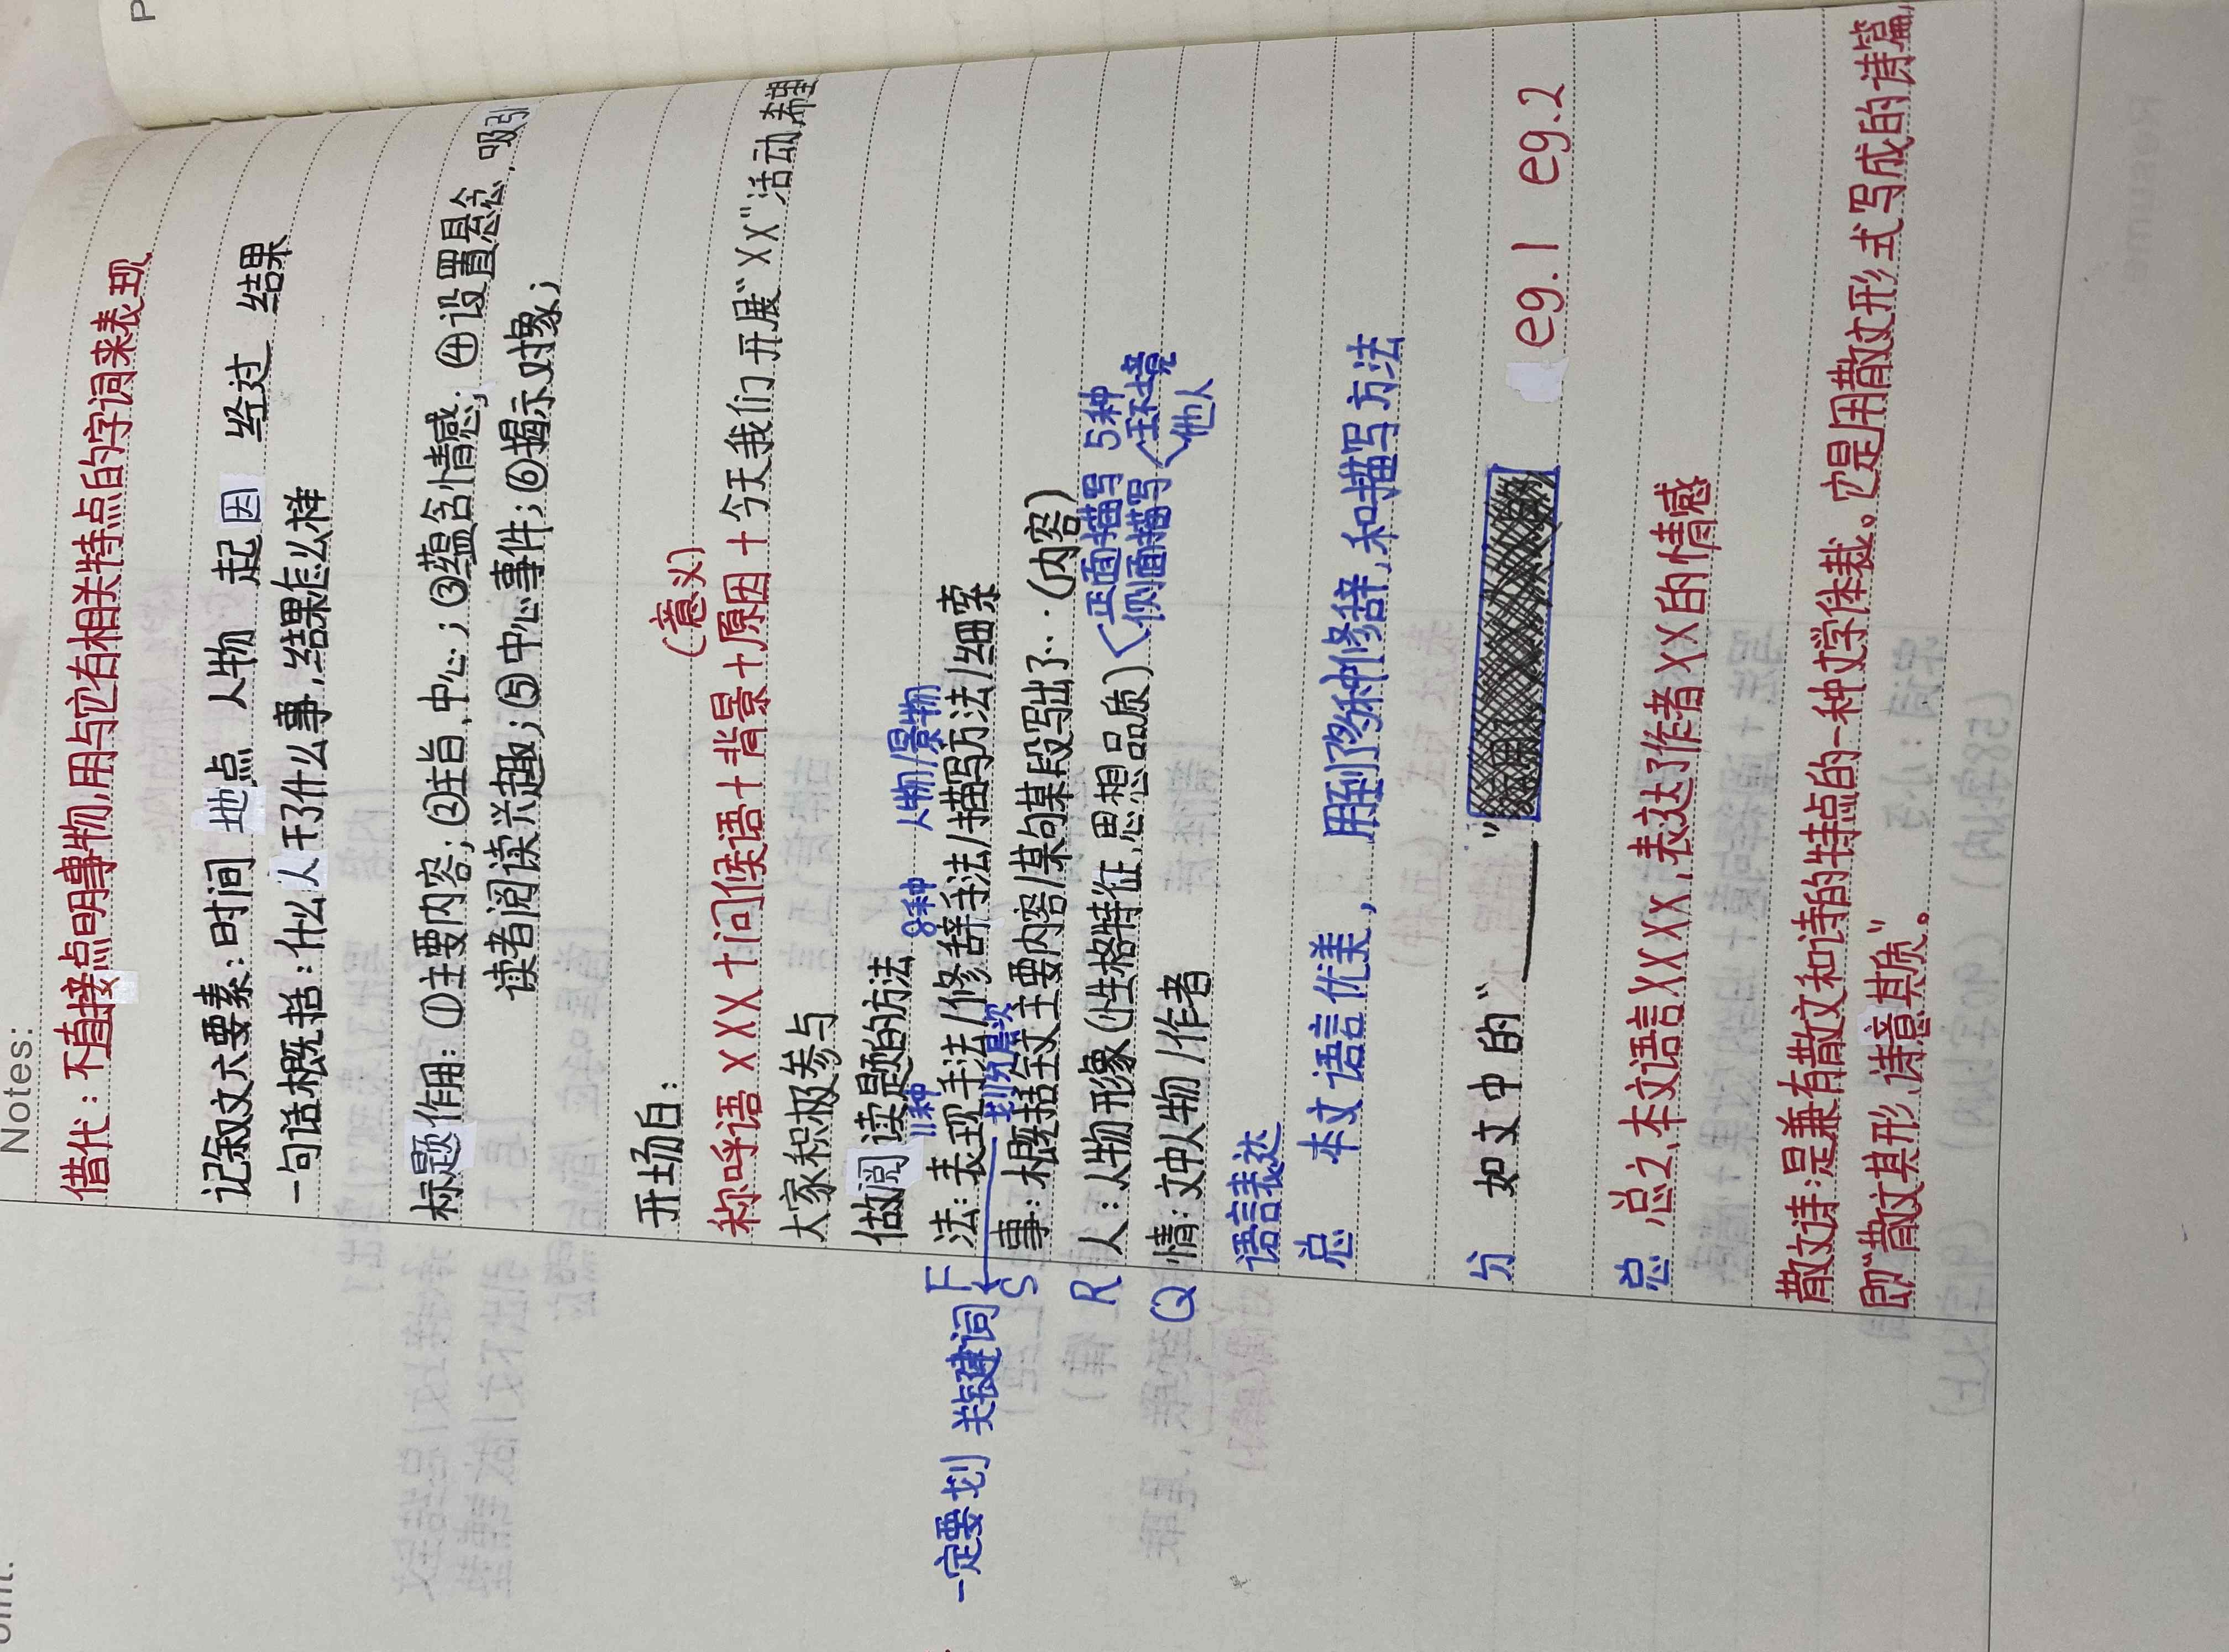 Notes:
借代：不直接点明事物,用与它有相关特点的字词来表现
记叙文六要素：时间 地点 人物 起因 经过 结果
一句话概括：什么人干了什么事,结果怎么样
标题作用：①主要内容；②主旨,中心；③蕴含情感；④设置悬念,吸引
读者阅读兴趣；⑤中心事件；⑥揭示对象；
开场白：
(意义)
称呼语XXX+问候语+背景+原因+今天我们开展“XX”活动,希望
大家积极参与
做阅读题的方法
11种 8种 人物/景物
F 法：表现手法/修辞手法/描写方法/线索
一定要划 关键词 划分层次
S 事：概括全文主要内容/某句某段写出了…(内容)
R 人：人物形象(性格特征,思想品质) 正面描写 5种
侧面描写 环境
他人
Q 情：文中人物/作者
语言表达
总 本文语言优美，用到了多种修辞,和描写方法
分 如文中的“ ” eg.1 eg.2
总 总之,本文语言XXXX,表达了作者XX的情感
散文诗：是兼有散文和诗的特点的一种文学体裁。它是用散文形式写成的诗篇,
即“散文其形,诗意其质”。
Resume